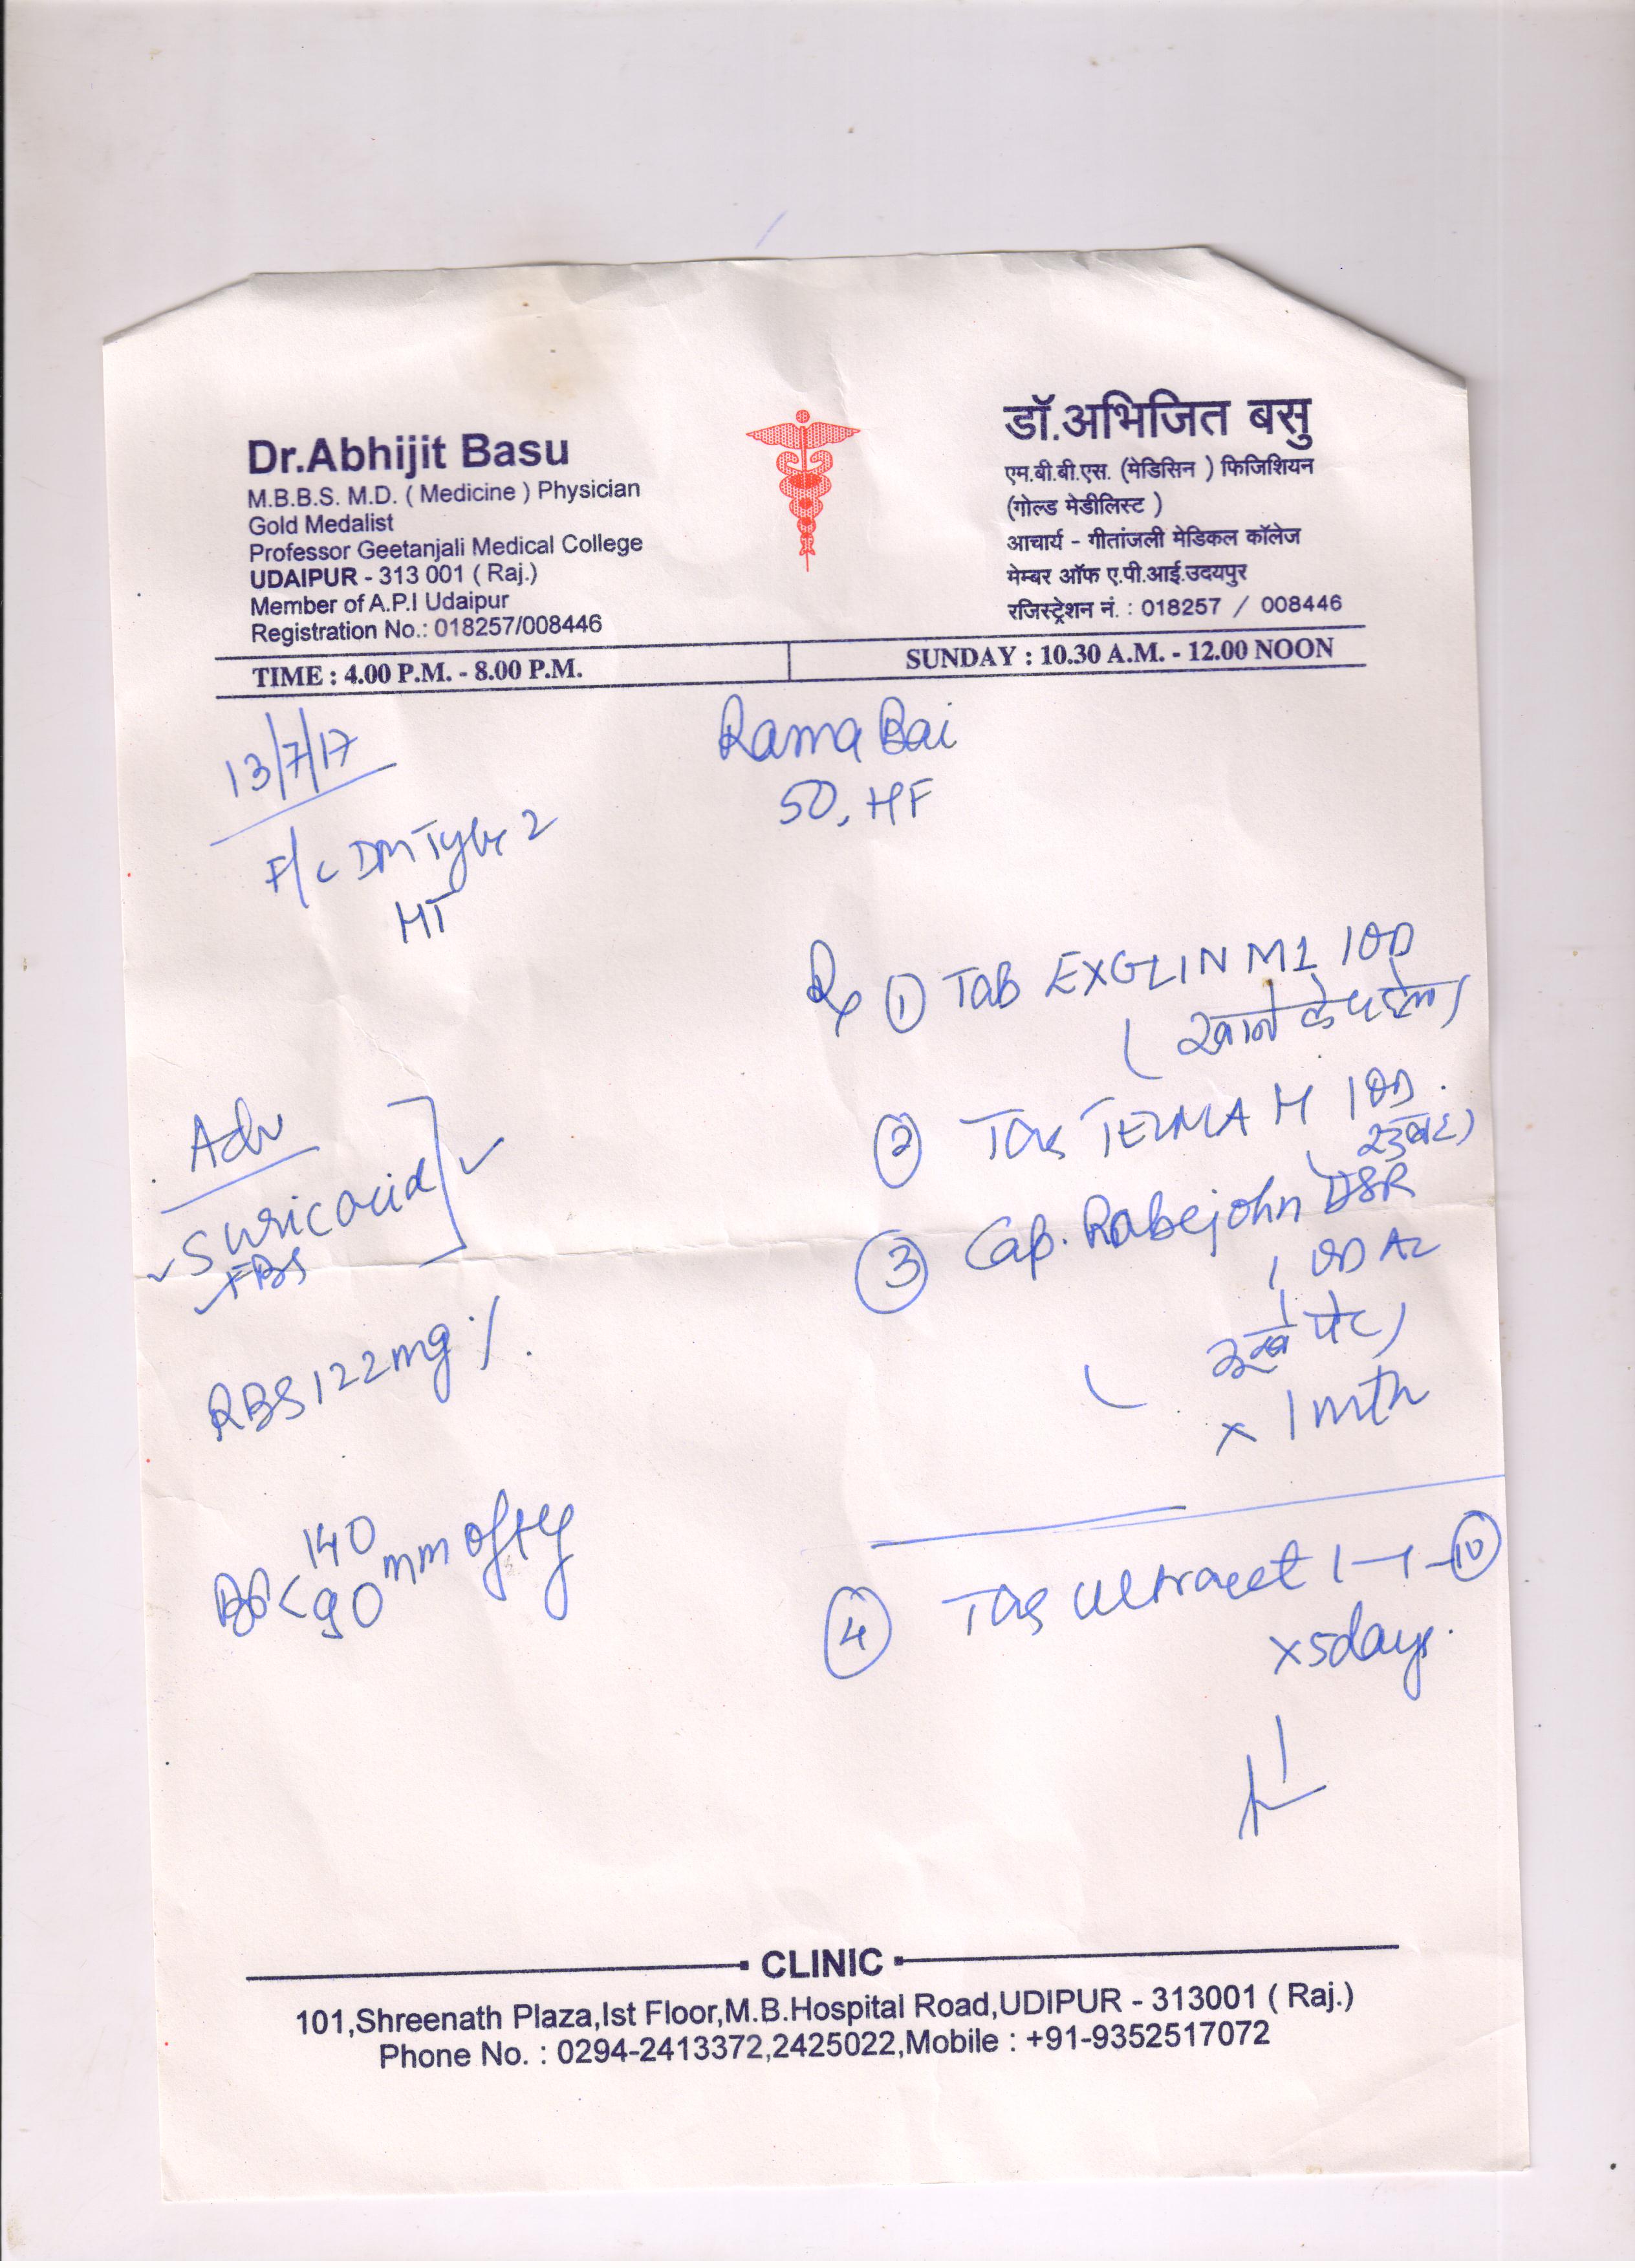 Dr.Abhijit Basu
M.B.B.S. M.D. ( Medicine ) Physician
Gold Medalist
Professor Geetanjali Medical College
UDAIPUR - 313 001 ( Raj.)
Member of A.P.I Udaipur
Registration No.: 018257/008446
डॉ.अभिजित बसु
एम.बी.बी.एस. (मेडिसिन ) फिजिशियन
(गोल्ड मेडीलिस्ट )
आचार्य - गीतांजली मेडिकल कॉलेज
मेम्बर ऑफ ए.पी.आई.उदयपुर
रजिस्ट्रेशन नं. : 018257 / 008446
TIME : 4.00 P.M. - 8.00 P.M.
SUNDAY : 10.30 A.M. - 12.00 NOON
13/7/17
Rama Bai
50, HF
F/c DM Type 2
HT
Rx ① Tab EXGLIN M1 1 OD
( खाने के पहले )
② Tab TELMA H 1 OD.
③ Cap. Rabejohn DSR
1 OD AC
( भूखे पेट )
x 1 mth
Adv
S uric acid
FBS
RBS 122 mg %.
BP < 140 mm of Hg
90
④ Tab Ultracet 1-1 - ⑩
x 5 days.
CLINIC
101,Shreenath Plaza,Ist Floor,M.B.Hospital Road,UDIPUR - 313001 ( Raj.)
Phone No. : 0294-2413372,2425022,Mobile : +91-9352517072